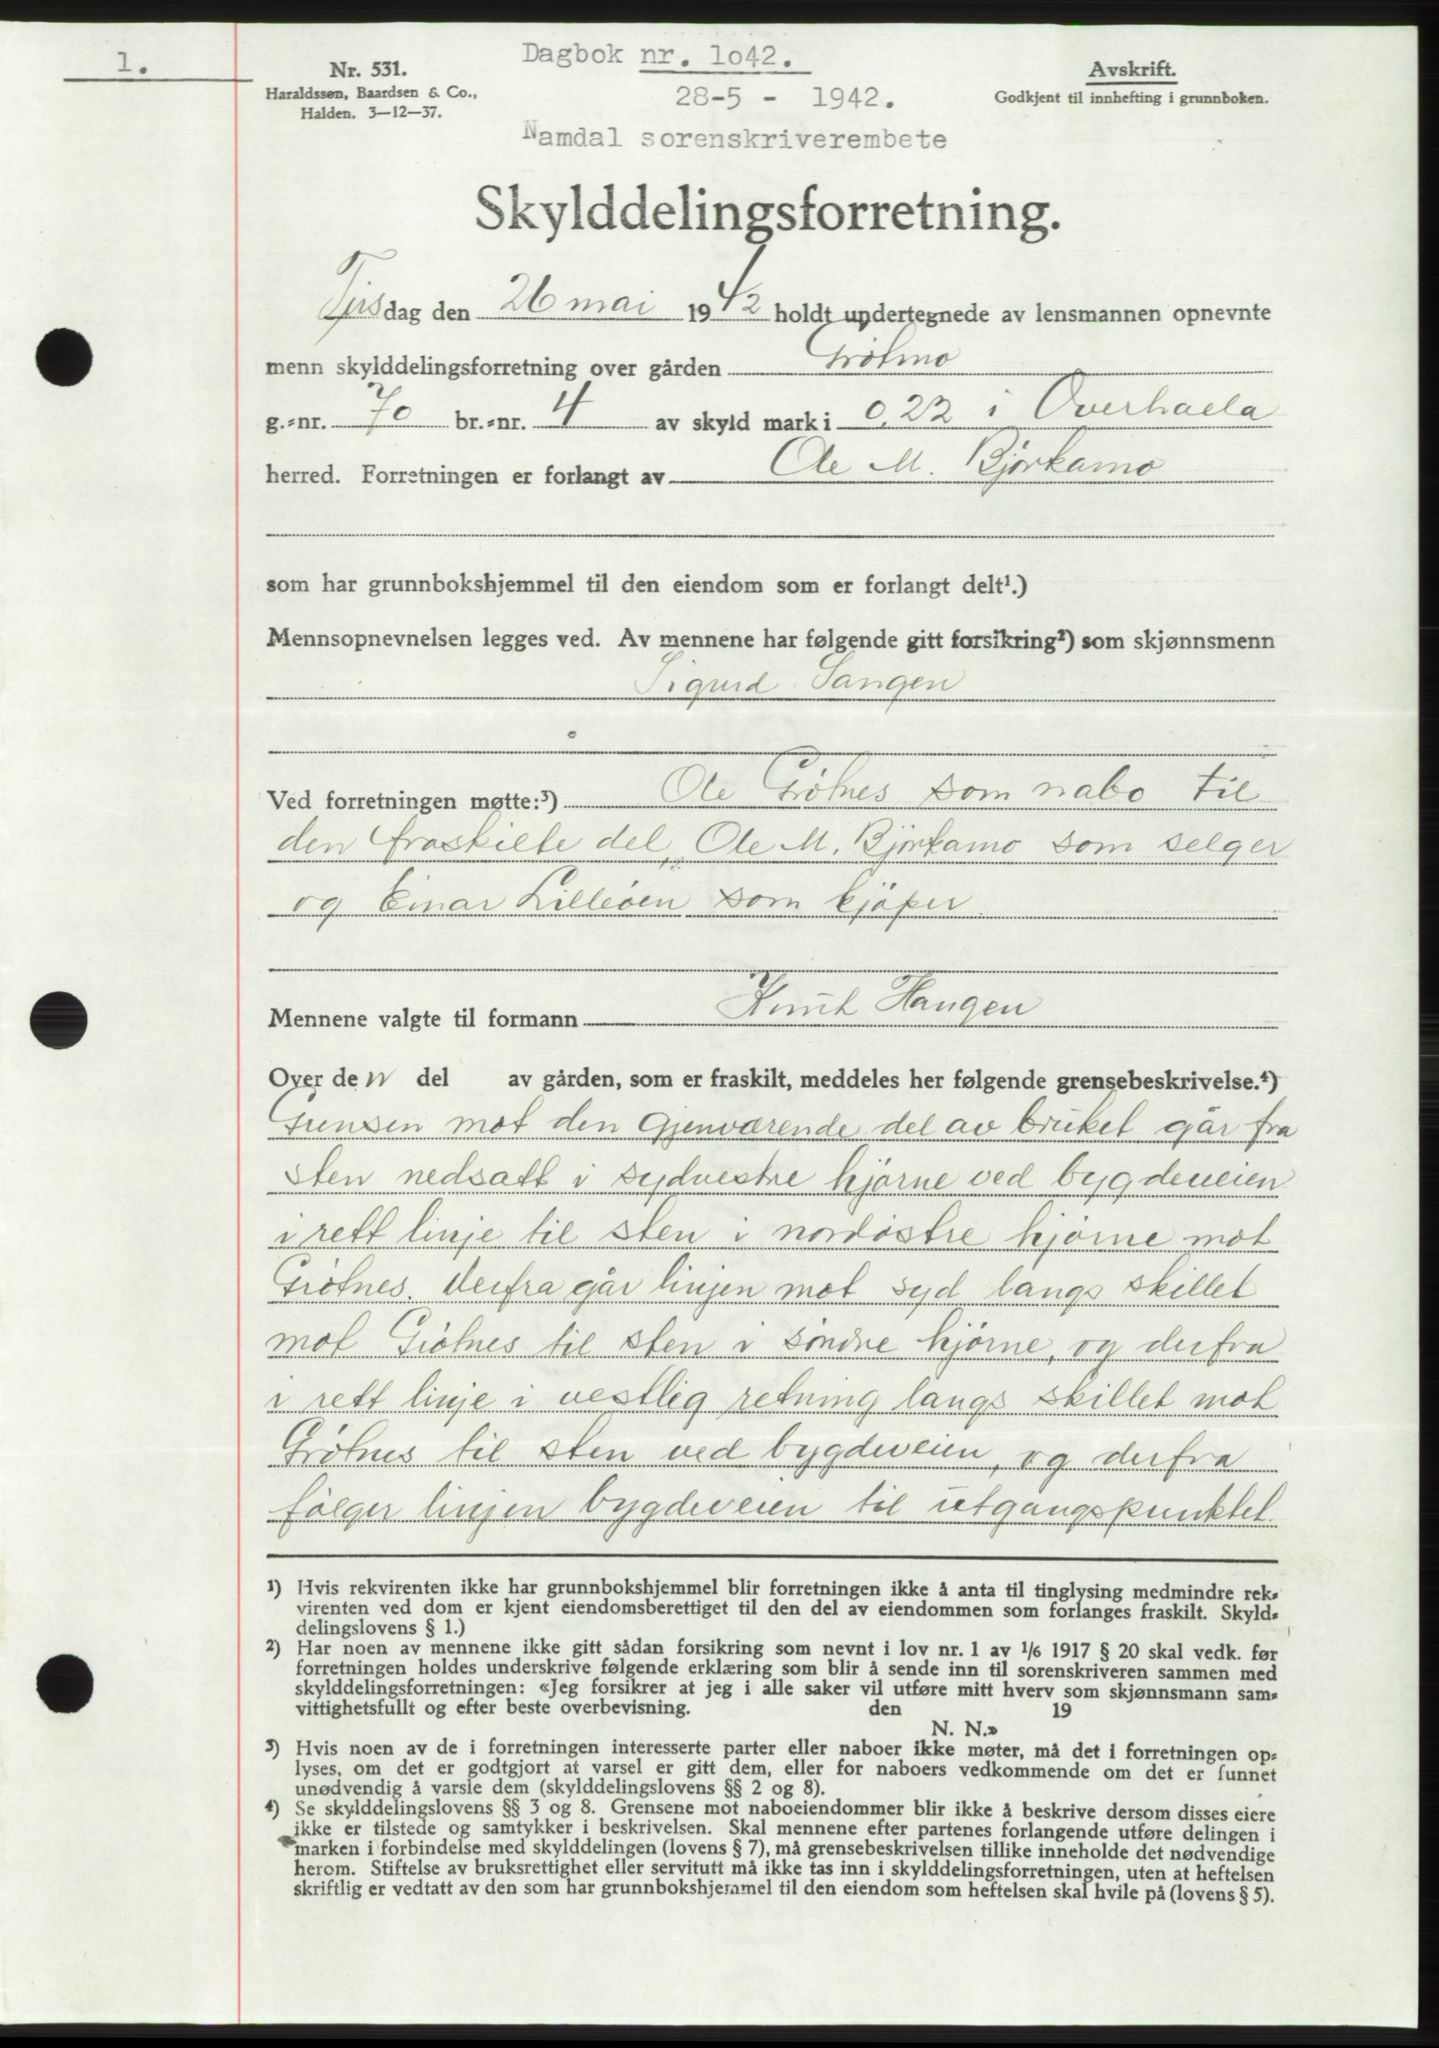 1.
Nr. 531.
Haraldssøn, Baardsen & Co.,
Halden. 3—12—37.
Dagbok nr. 1o42.
28-5 - 1942.
Namdal sorenskriverembete
Avskrift.
Godkjent til innhefting i grunnboken.
Skylddelingsforretning.
Tirsdag den 26 mai 1942 holdt undertegnede av lensmannen opnevnte
menn skylddelingsforretning over gården Grötmo
g.-nr. 70 br.-nr. 4 av skyld mark i 0,22 i Overhalla
herred. Forretningen er forlangt av Ole M. Björkamo
som har grunnbokshjemmel til den eiendom som er forlangt delt¹.)
Mennsopnevnelsen legges ved. Av mennene har følgende gitt forsikring²) som skjønnsmenn
Sigurd Sangen
Ved forretningen møtte:³) Ole Grötnes som nabo til
den fraskilte del, Ole M. Björkamo som selger
og Einar Lilleöen som kjöper.
Mennene valgte til formann Knut Haugen
Over den del av gården, som er fraskilt, meddeles her følgende grensebeskrivelse.⁴)
Grensen mot den gjenværende del av bruket går fra
sten nedsatt i sydvestre hjörne ved bygdeveien
i rett linje til sten i nordöstre hjörne mot
Grötnes. Derfra går linjen mot syd langs skillet
mot Grötnes til sten i söndre hjörne, og derfra
i rett linje i vestlig retning langs skillet mot
Grötnes til sten ved bygdeveien, og derfra
fölger linjen bygdeveien til utgangspunktet.
¹) Hvis rekvirenten ikke har grunnbokshjemmel blir forretningen ikke å anta til tinglysing medmindre rek-
virenten ved dom er kjent eiendomsberettiget til den del av eiendommen som forlanges fraskilt. Skyld-
delingslovens § 1.)
²) Har noen av mennene ikke gitt sådan forsikring som nevnt i lov nr. 1 av 1/6 1917 § 20 skal vedk. før
forretningen holdes underskrive følgende erklæring som blir å sende inn til sorenskriveren sammen med
skylddelingsforretningen: «Jeg forsikrer at jeg i alle saker vil utføre mitt hverv som skjønnsmann sam-
vittighetsfullt og efter beste overbevisning. den 19
N. N.»
³) Hvis noen av de i forretningen interesserte parter eller naboer ikke møter, må det i forretningen op-
lyses, om det er godtgjort at varsel er gitt dem, eller for naboers vedkommende om det er funnet
unødvendig å varsle dem (skylddelingslovens §§ 2 og 8).
⁴) Se skylddelingslovens §§ 3 og 8. Grensene mot naboeiendommer blir ikke å beskrive dersom disses eiere
ikke er tilstede og samtykker i beskrivelsen. Skal mennene efter partenes forlangende utføre delingen i
marken i forbindelse med skylddelingen (lovens § 7), må grensebeskrivelsen tillike inneholde det nødvendige
herom. Stiftelse av bruksrettighet eller servitutt må ikke tas inn i skylddelingsforretningen, uten at heftelsen
skriftlig er vedtatt av den som har grunnbokshjemmel til den eiendom som heftelsen skal hvile på (lovens § 5).